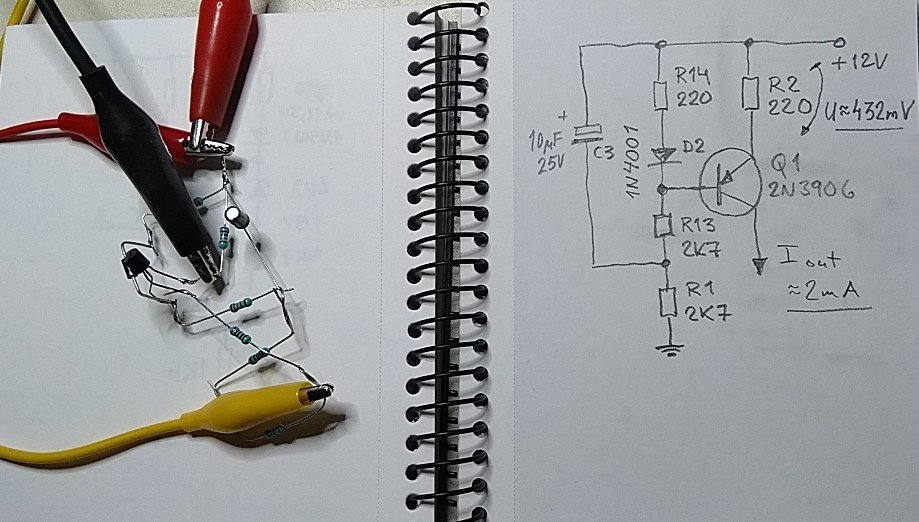 +12V
R14
220
R2
220
U≈432mV
+
10µF
25V
C3
1N4001
D2
Q1
2N3906
R13
2K7
Iout
≈2mA
R1
2K7